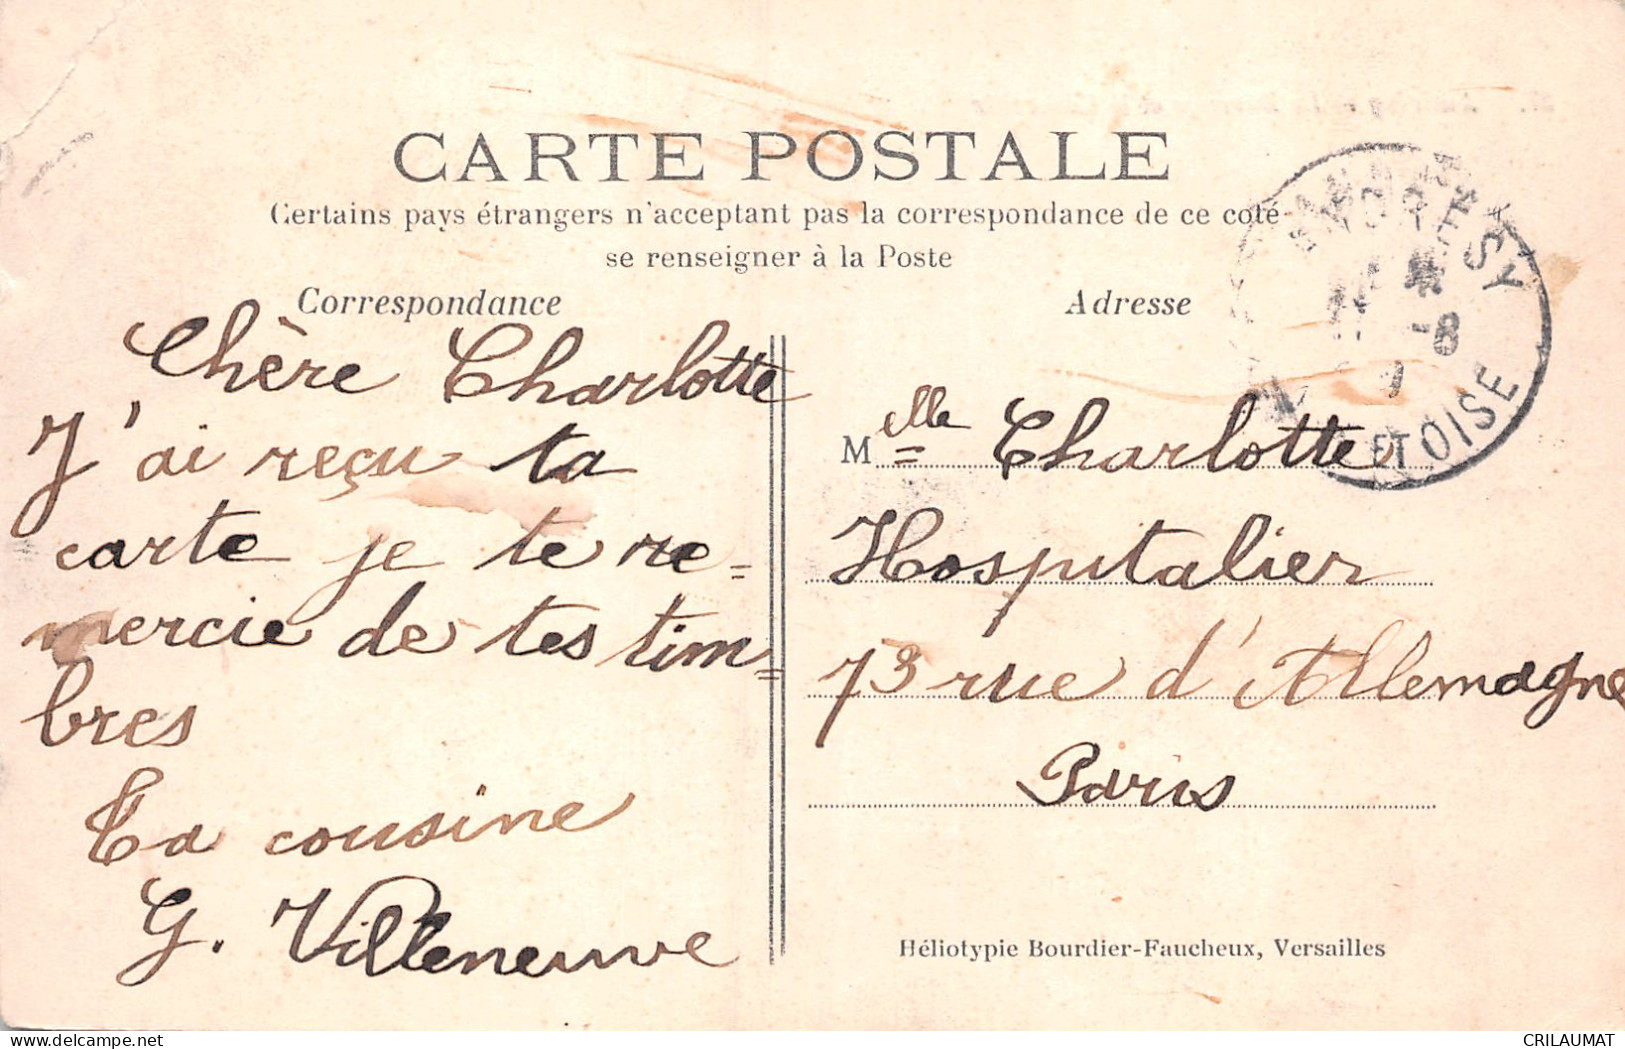 CARTE POSTALE
Certains pays étrangers n'acceptant pas la correspondance de ce coté
se renseigner à la Poste
Correspondance
Chère Charlotte
J'ai reçu ta
carte je te re=
mercie de tes tim=
bres
Ta cousine
G. Villeneuve
Adresse
Melle Charlotte
Hospitalier
73 rue d'Allemagne
Paris
ET OISE
Héliotypie Bourdier-Faucheux, Versailles
delcampe.net
CRILAUMAT